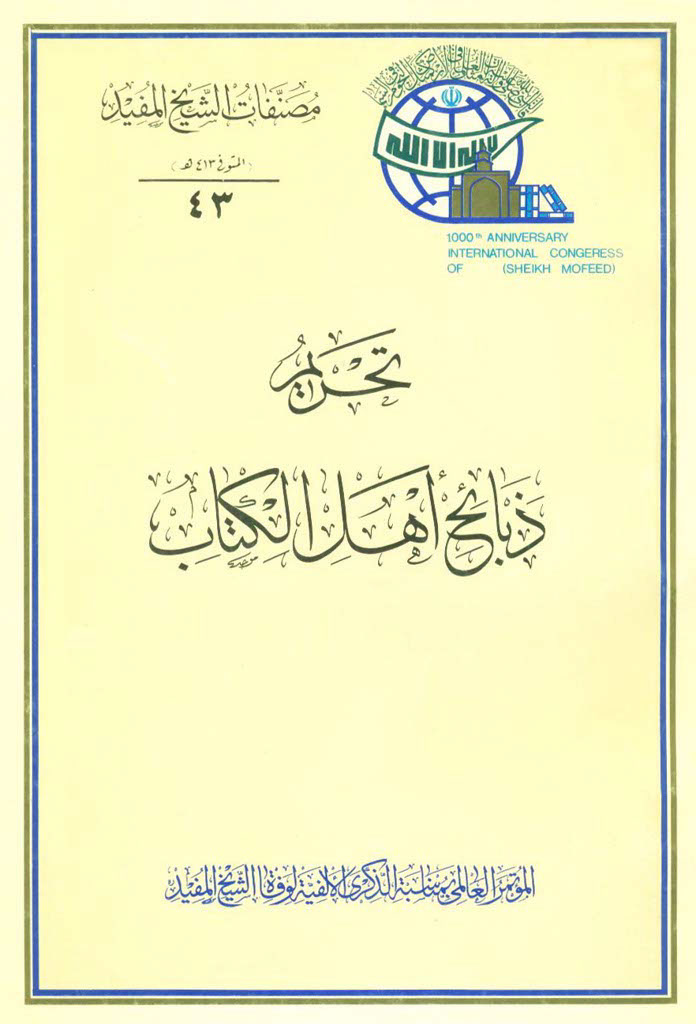 مصنفات الشيخ المفيد
(المتوفى ٤١٣ هـ)
٤٣
لا إله إلا الله
1000th ANNIVERSARY
INTERNATIONAL CONGERESS
OF (SHEIKH MOFEED)
تحريم
ذبائح أهل الكتاب
المؤتمر العالمي بمناسبة الذكرى الألفية لوفاة الشيخ المفيد